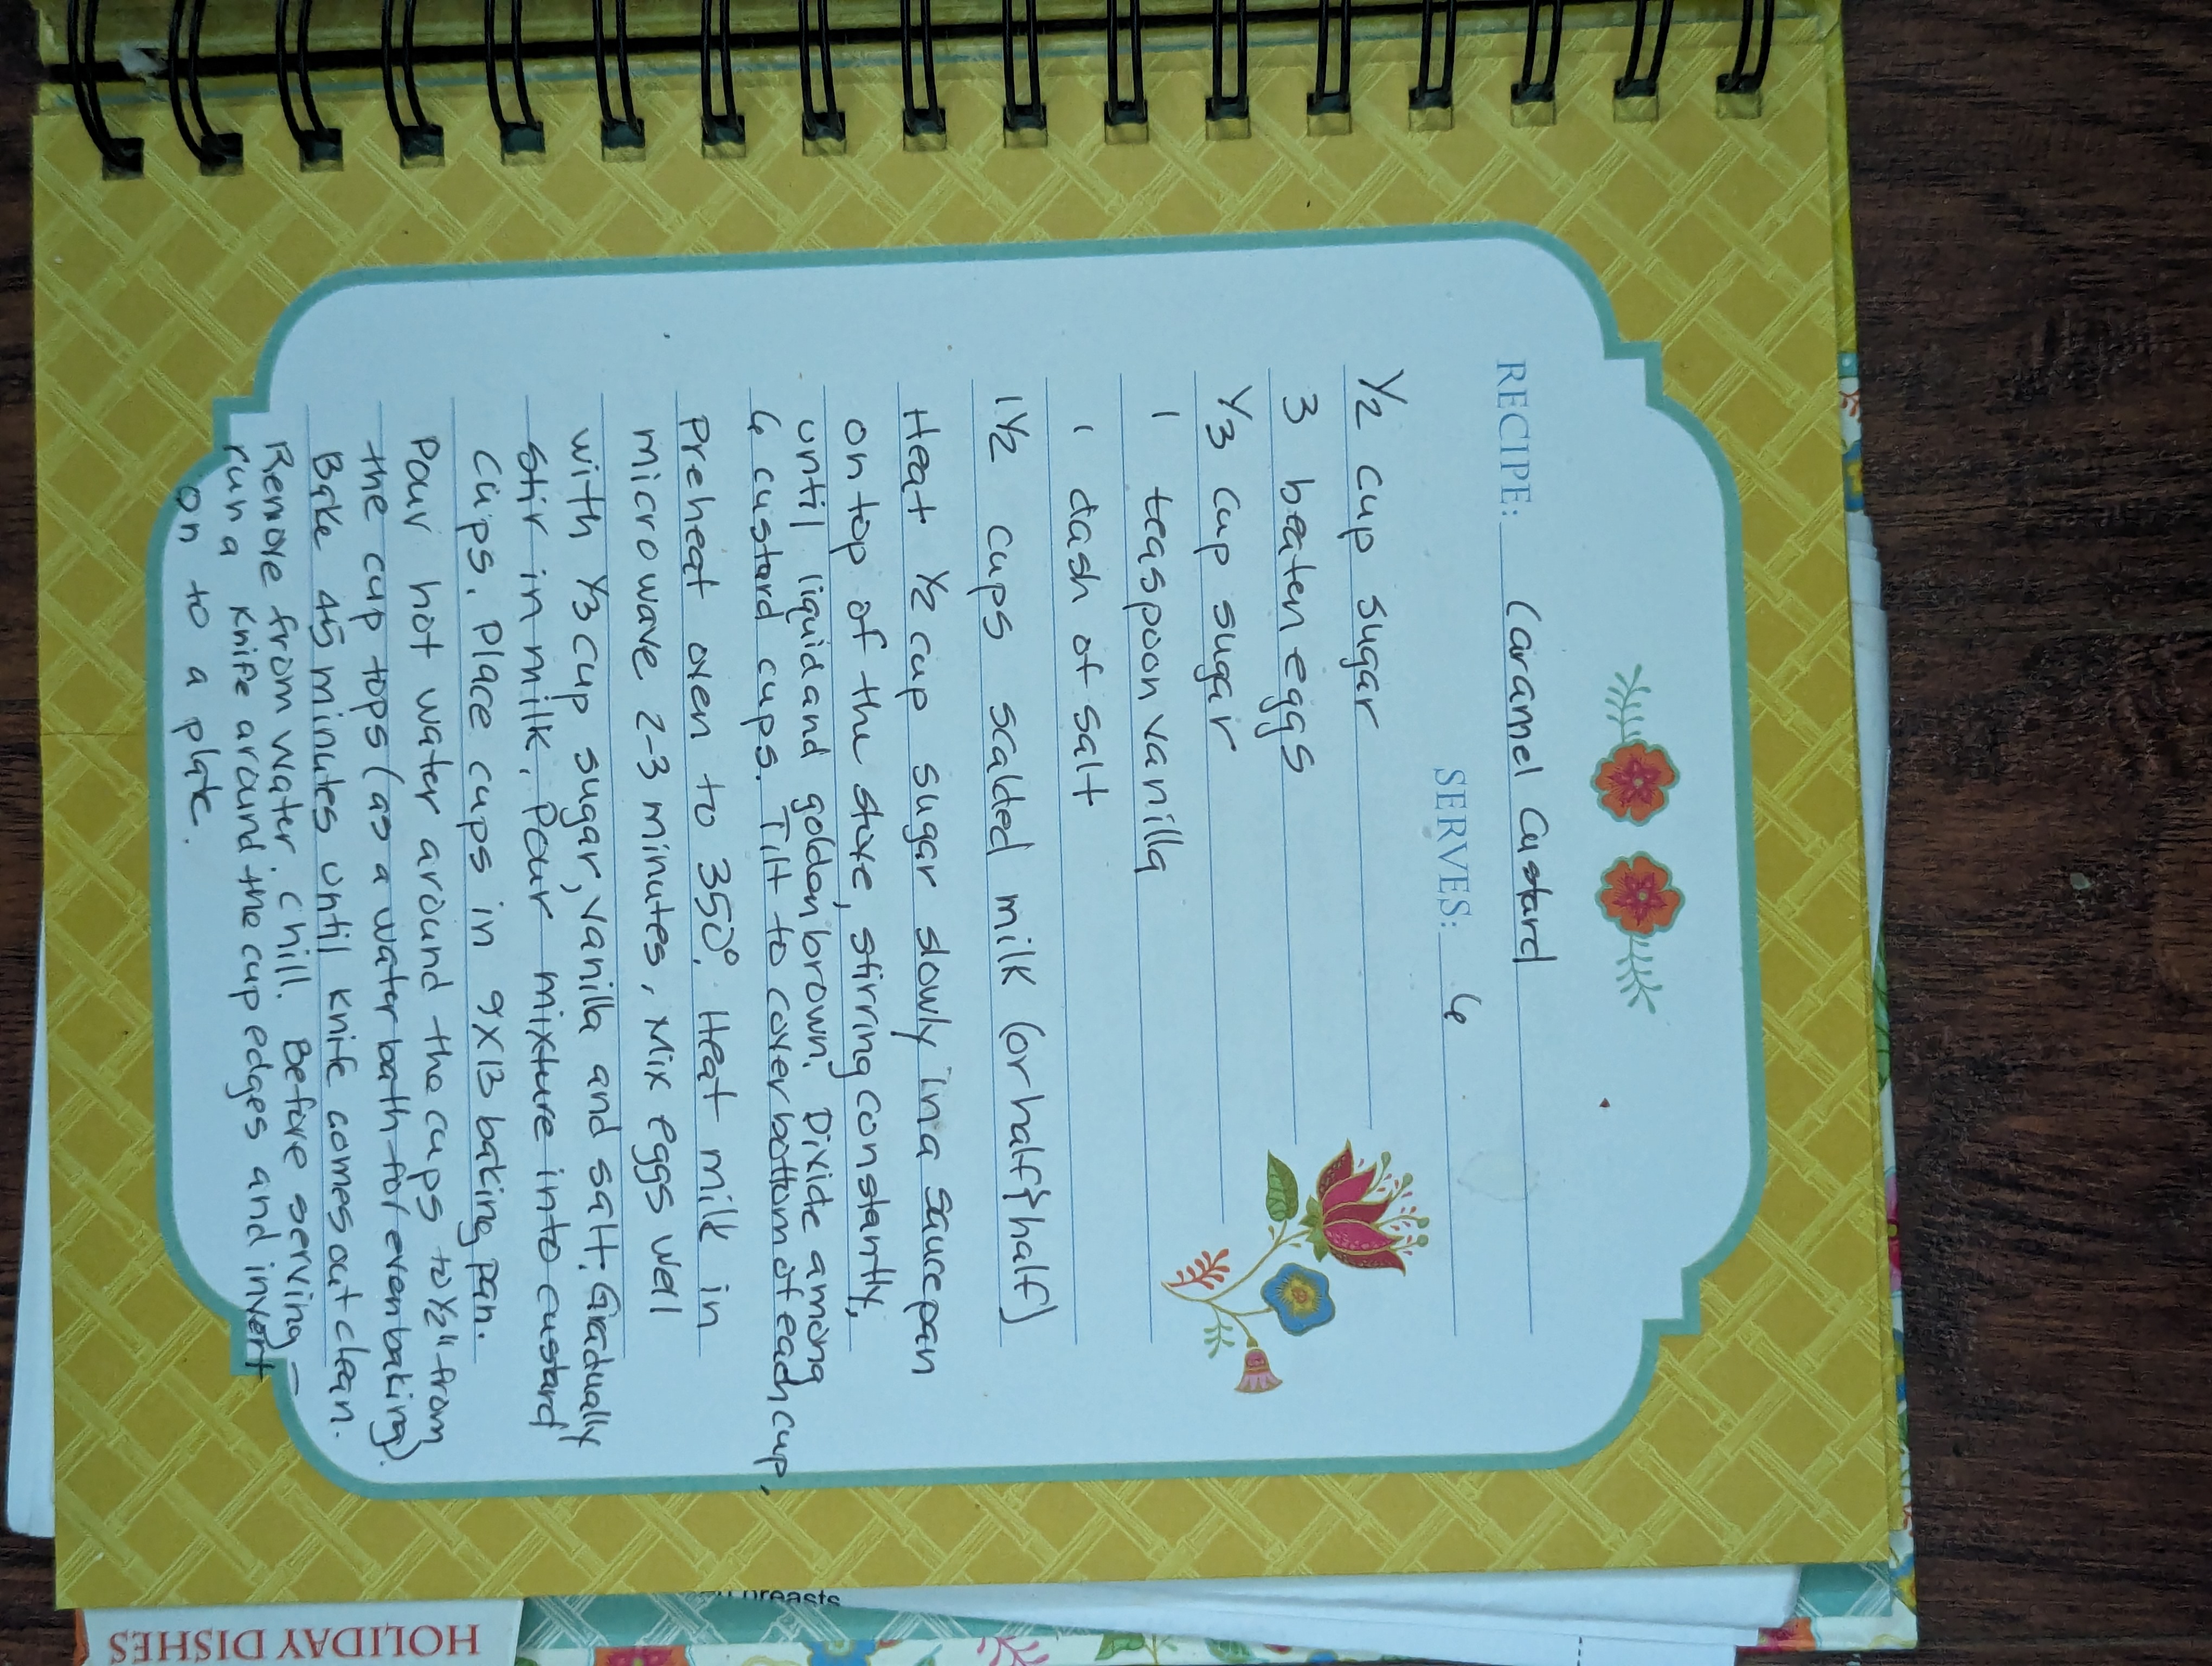 RECIPE: Caramel Custard
SERVES: 6
1/2 cup sugar
3 beaten eggs
1/3 cup sugar
1 teaspoon vanilla
1 dash of salt
1 1/2 cups scalded milk (or half & half)
Heat 1/2 cup sugar slowly in a saucepan
on top of the stove, stirring constantly,
until liquid and golden brown. Divide among
6 custard cups. Tilt to cover bottom of each cup,
Preheat oven to 350°. Heat milk in
microwave 2-3 minutes, Mix eggs well
with 1/3 cup sugar, vanilla and salt. Gradually
stir in milk. Pour mixture into custard
cups. Place cups in 9x13 baking pan.
Pour hot water around the cups to 1/2" from
the cup tops (as a water bath for even baking).
Bake 45 minutes until knife comes out clean.
Remove from water, chill. Before serving -
run a knife around the cup edges and invert
on to a plate.
breasts
HOLIDAY DISHES